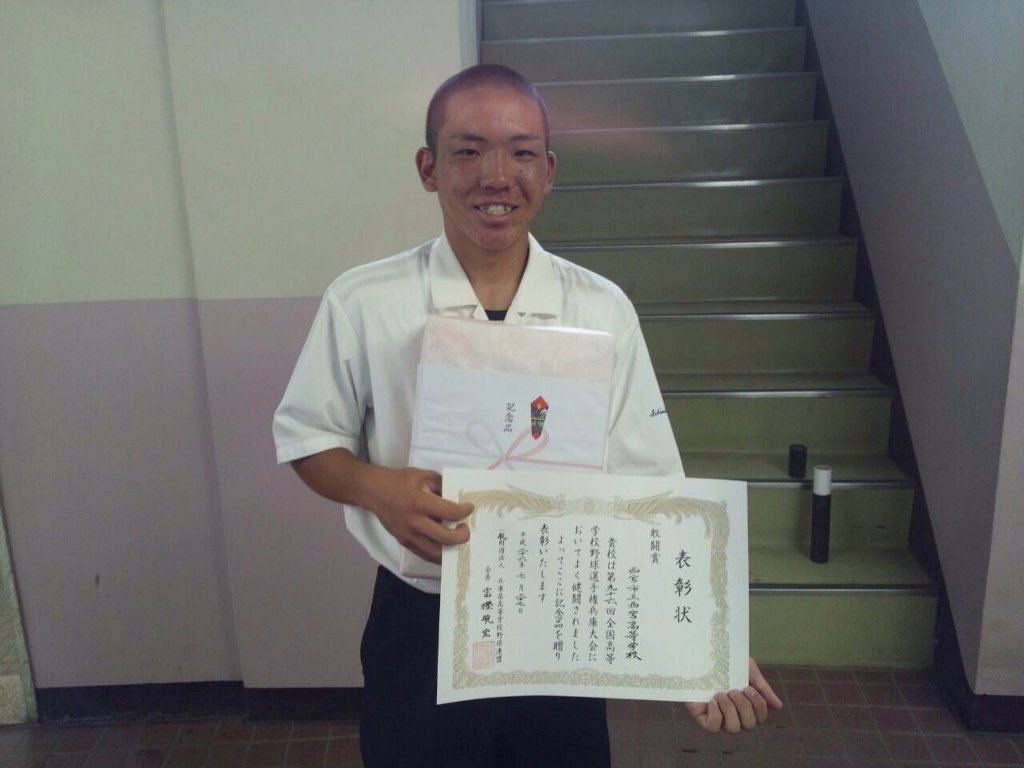 記念品
表彰状
敢闘賞
西宮市立西宮高等学校
貴校は第九十六回全国高等
学校野球選手権兵庫大会に
おいてよく健闘されました
よってここに記念品を贈り
表彰いたします
平成二十六年七月二十七日
一般財団法人 兵庫県高等学校野球連盟
会長